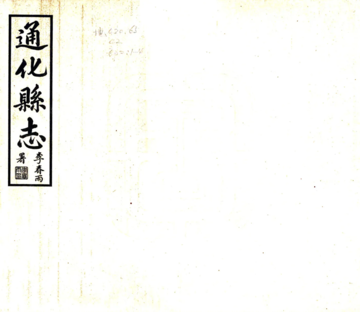 通化縣志
李春雨
署